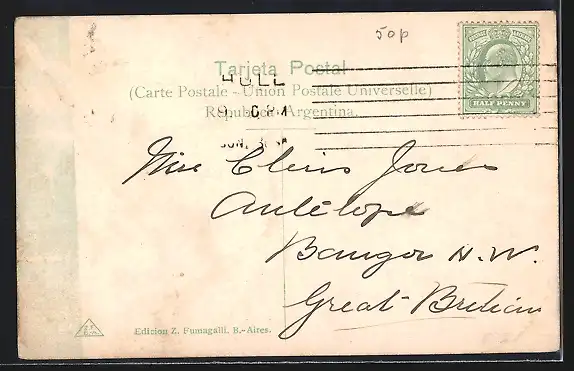 50p
Tarjeta Postal
HULL
(Carte Postale - Union Postale Universelle)
República Argentina.
JUN.
Miss Cleris Jones
Antelope
Bangor N.W.
Great Britain
HALF PENNY
Edicion Z. Fumagalli. B.-Aires.